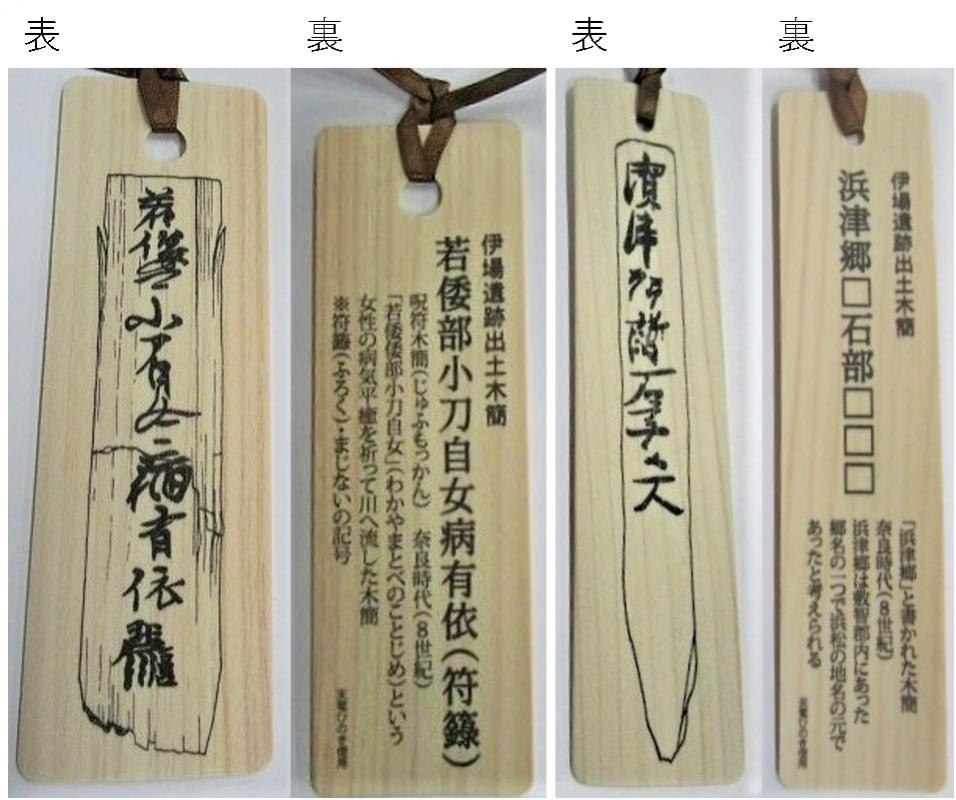 表
若倭
小
女病有依
裏
伊場遺跡出土木簡
若倭部小刀自女病有依(符籙)
呪符木簡(じゅふもっかん) 奈良時代(8世紀)
「若倭部小刀自女」(わかやまとべのことじめ)という
女性の病気平癒を祈って川へ流した木簡
※符籙(ふろく)・まじないの記号
天竜ひのき使用
表
濱津
裏
伊場遺跡出土木簡
浜津郷□石部□□□
「浜津郷」と書かれた木簡
奈良時代(8世紀)
浜津郷は敷智郡内にあった
郷名の一つで浜松の地名の元で
あったと考えられる
天竜ひのき使用